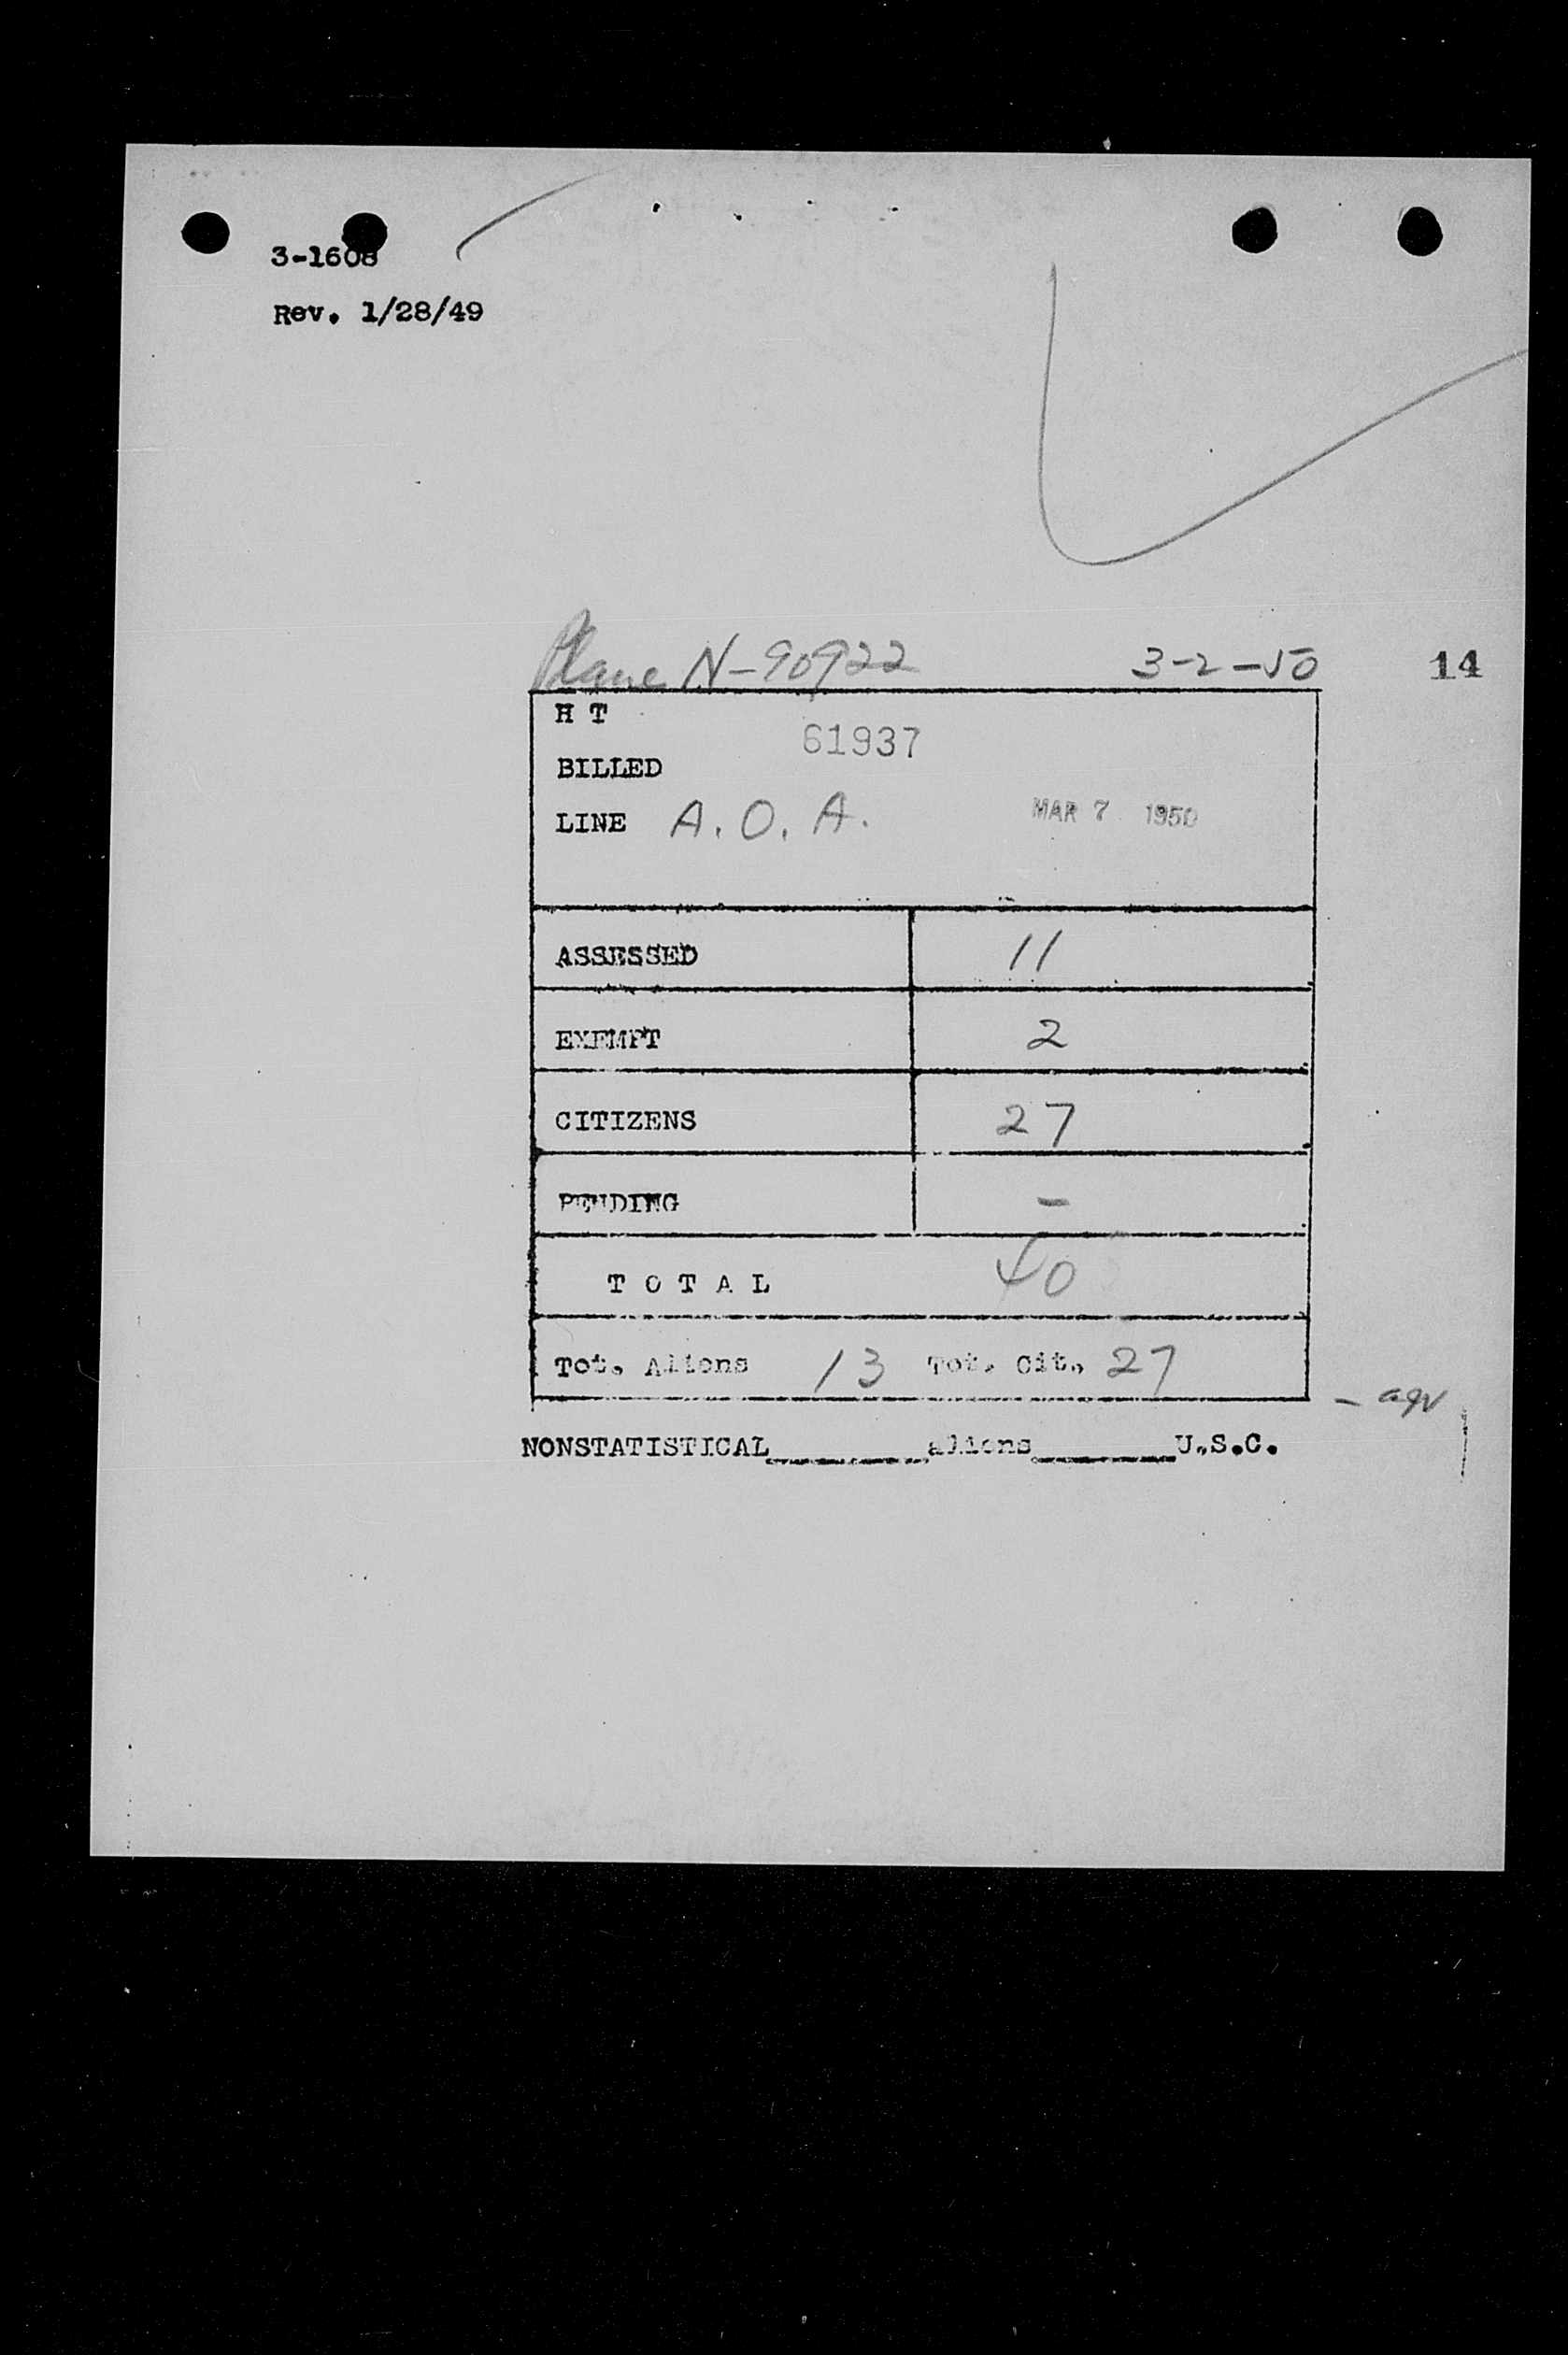 3-1608
Rev. 1/28/49
Plane N-90922 3-2-50 14
H T
61937
BILLED
LINE A.O.A. MAR 7 1950
ASSESSED 11
EXEMPT 2
CITIZENS 27
PENDING -
T O T A L 40
Tot. Aliens 13 Tot. Cit. 27
NONSTATISTICAL__________aliens__________U.S.C.